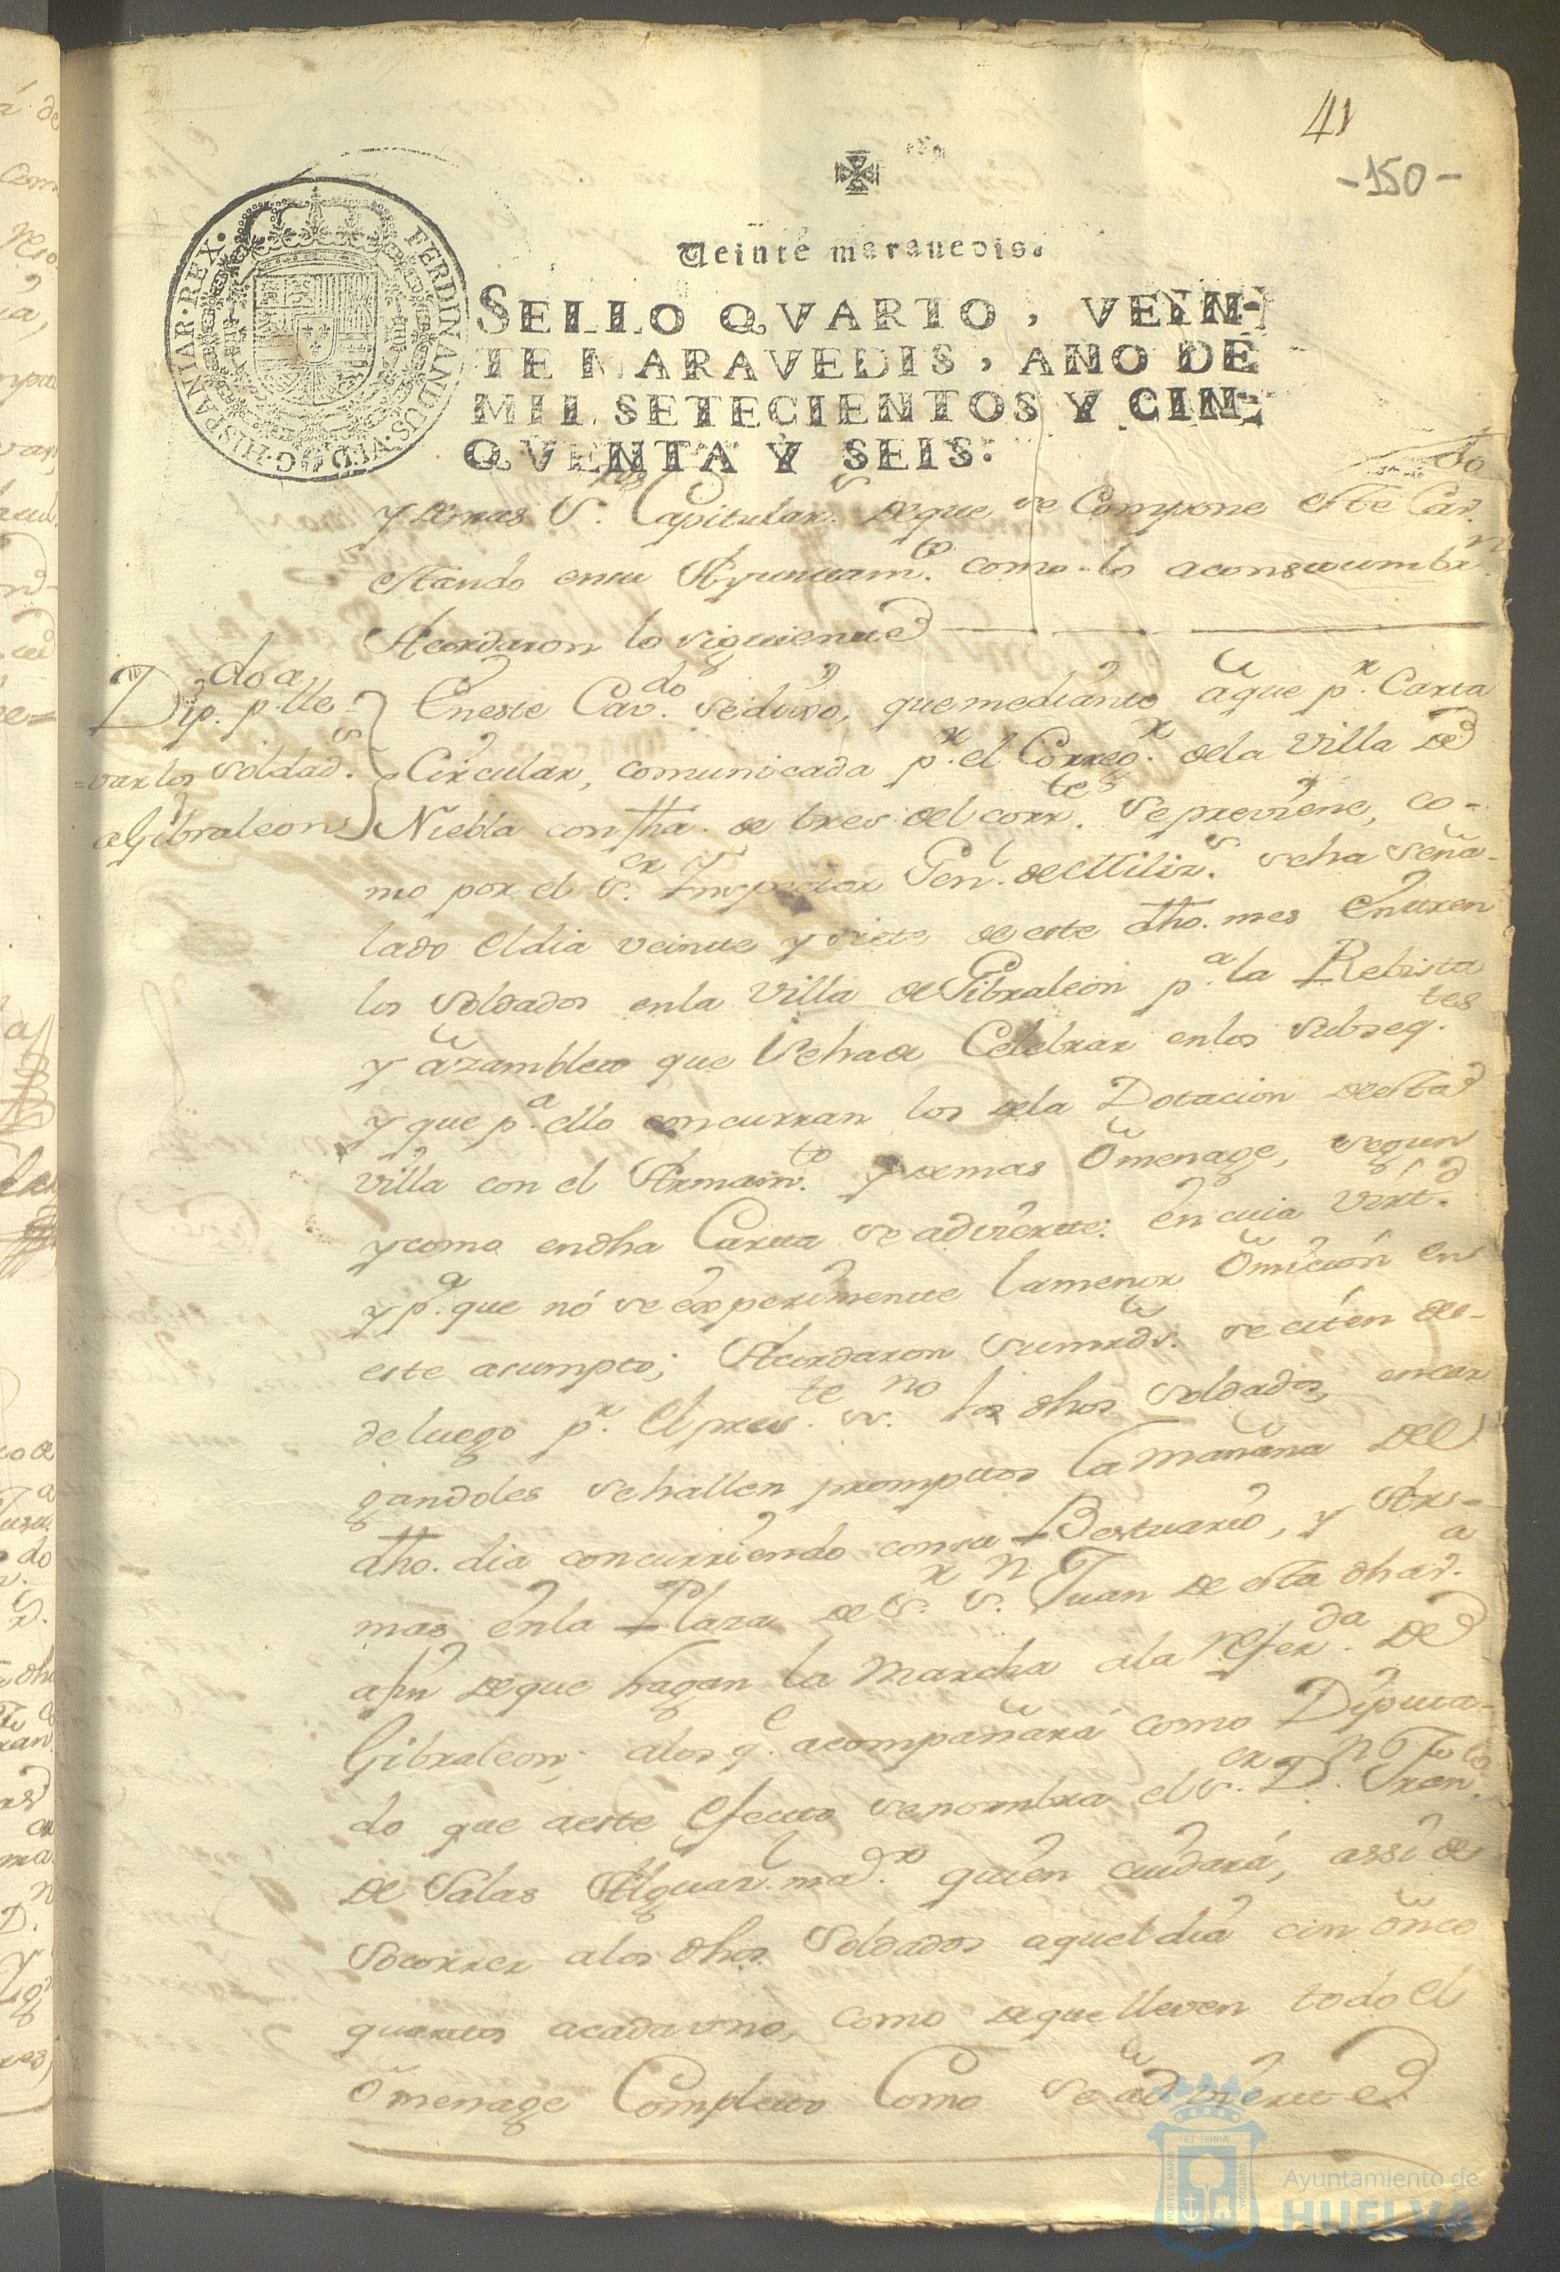 41
-150-
Veinte maravedis.
SELLO QVARTO, VEIN-
TE MARAVEDIS, AÑO DE
MIL SETECIENTOS Y CIN-
QVENTA Y SEIS:
FERDINANDUS·VI·D·G·HISPANIAR·REX·
y demas S.res Capitular.s de que se Compone este Cav.do
estando en su Ayuntam.to como lo aconstumbr.n
Acordaron lo siguiente
Dip.do p.a lle-
=var los soldad.s
a Gibraleon
En este Cav.do se dixo, que mediante a que p.r Carta
Circular, comunicada p.r el Correg.r de la Villa de
Niebla con fha. de tres del corr.te se previene, co-
mo por el S.or Inspector Gen.l de Miliz.s se ha seña-
lado el dia veinte y siete de este dho. mes entren
los soldados en la Villa de Gibraleon p.a la Rebista
y azamblea que se ha de Celebrar en los subseq.tes
y que p.a ello concurran los de la Dotacion de esta
villa con el Armam.to y demas omenage, segun
y como en dha Carta se advierte: en cuia virt.d
y p.a que nó se experimente la menor omición en
este asumpto; Acordaron sus mrds. se citen des-
de luego p.r el pres.te ss.no los dhos soldados, encar
gandoles se hallen promptos la mañana del
dho. dia concurriendo con su Bestuario, y Ar-
mas en la Plaza de S.r S.n Juan de esta dha v.a
a fin de que hagan la marcha a la refer.da de
Gibraleon; a los q.e acompañará como Diputa-
do que a este efecto se nombra el S.or D.n Fran.co
de Salas Alguaz.l ma.r quien cuidará, assi de
socorrer a los dhos soldados aquel dia con onze
quartos a cada vno, como de que lleven todo el
omenage Completo Como se advierte
Ayuntamiento de
HUELVA